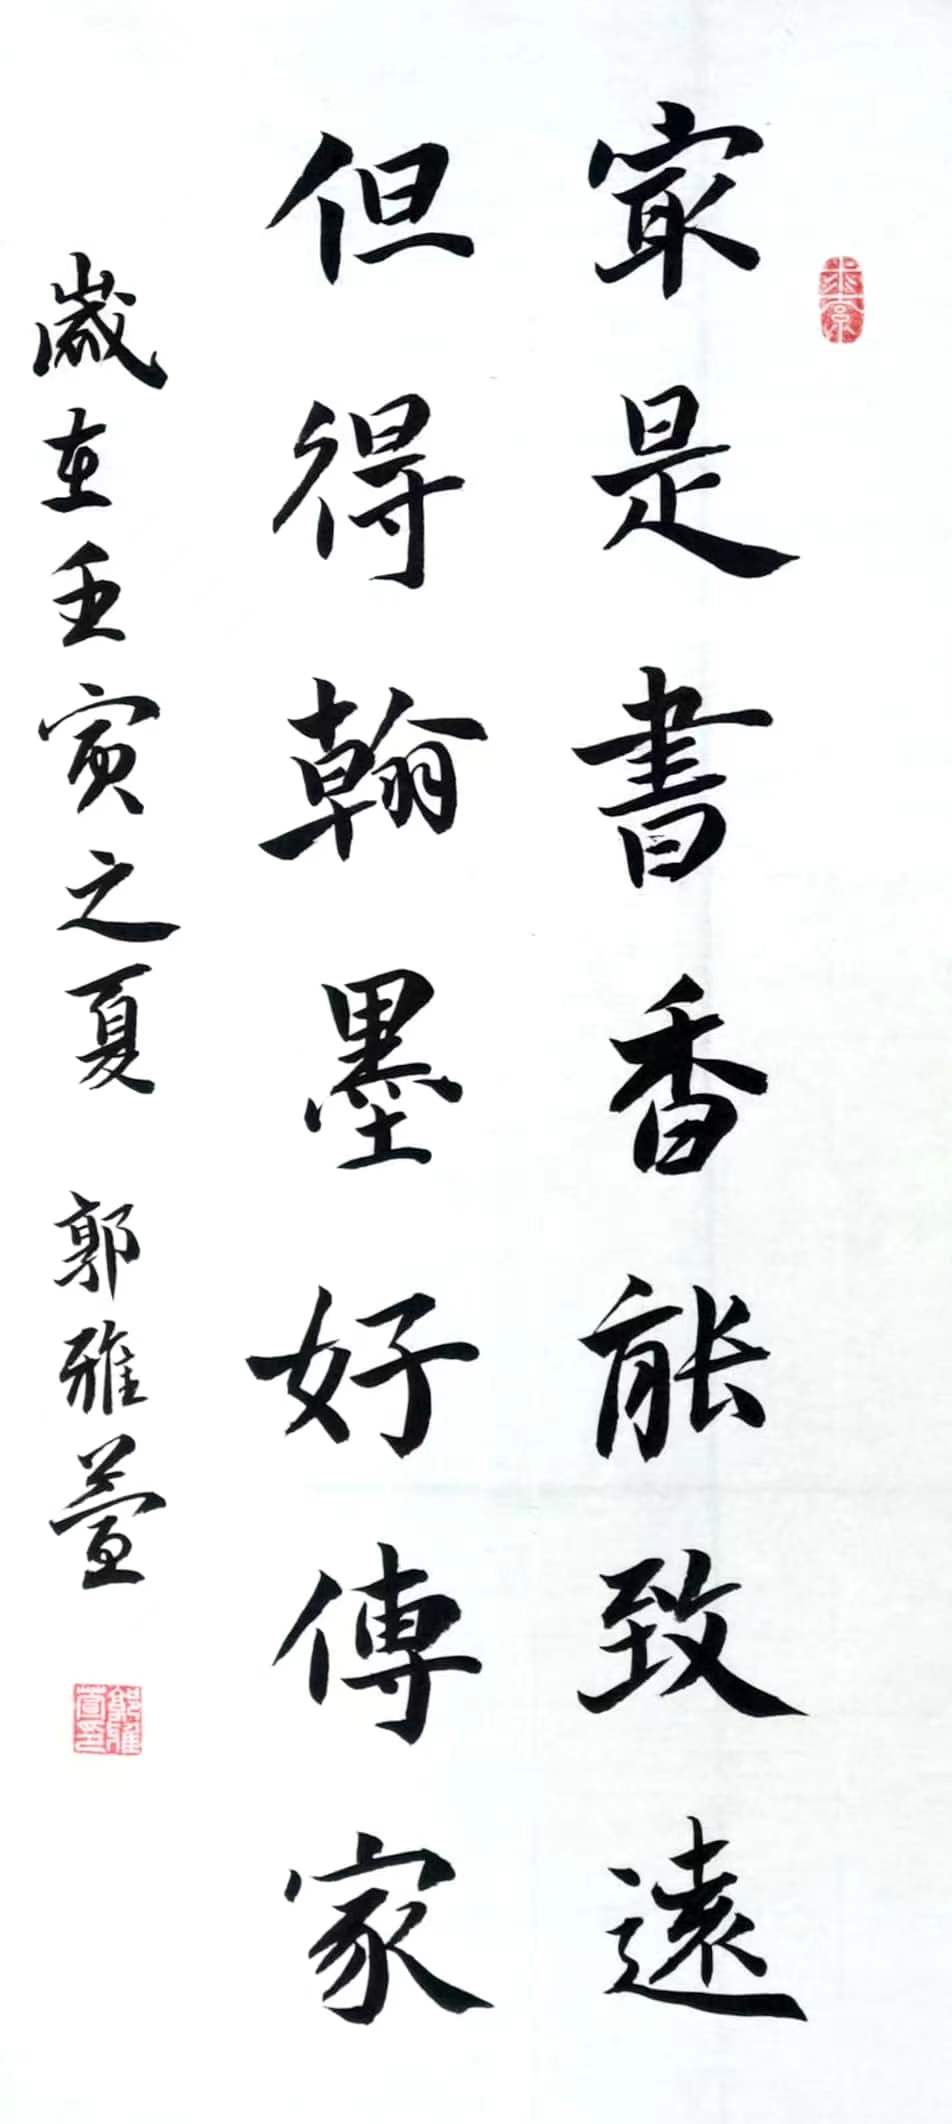 寂是書香能致遠
但得翰墨好傳家
歲在壬寅之夏 郭雅萱
郭雅萱印